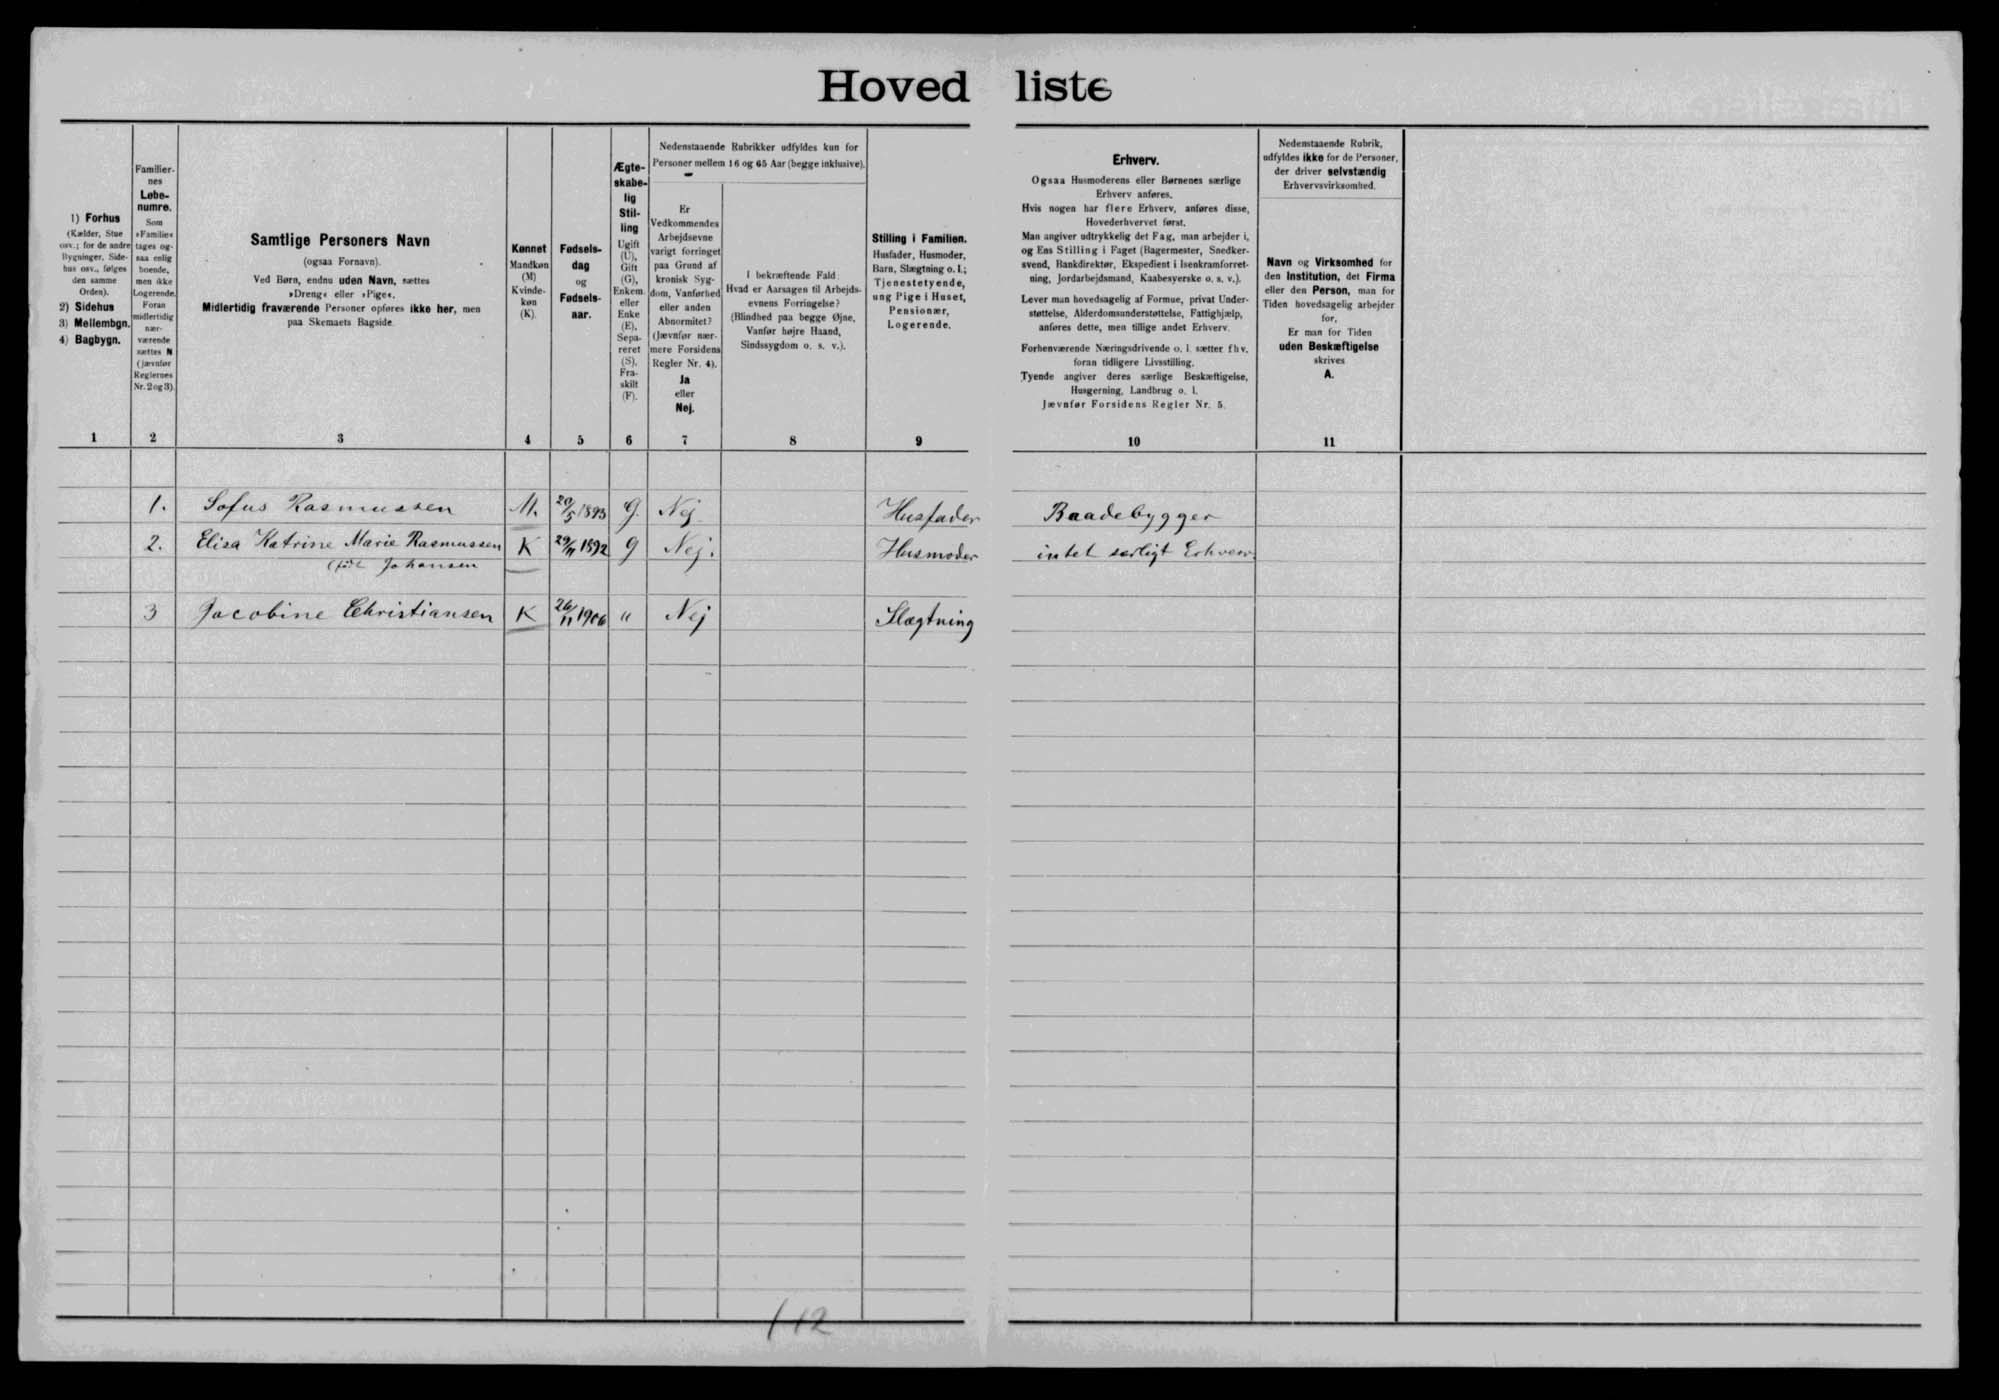 Hovedliste
1) Forhus
(Kælder, Stue
osv.; for de andre
Bygninger, Side-
hus osv., følges
den samme
Orden).
2) Sidehus
3) Mellembgn.
4) Bagbygn.
Familier-
nes
Løbe-
numre.
Som
»Familie«
tages og-
saa enlig
boende,
men ikke
Logerende.
Foran
midlertidig
nær-
værende
sættes N
(jævnfør
Reglernes
Nr. 2 og 3).
Samtlige Personers Navn
(ogsaa Fornavn).
Ved Børn, endnu uden Navn, sættes
»Dreng« eller »Pige«.
Midlertidig fraværende Personer opføres ikke her, men
paa Skemaets Bagside.
Kønnet
Mandkøn
(M)
Kvinde-
køn
(K).
Fødsels-
dag
og
Fødsels-
aar.
Ægte-
skabe-
lig
Stil-
ling
Ugift
(U),
Gift
(G),
Enkem.
eller
Enke
(E),
Sepa-
reret
(S),
Fra-
skilt
(F).
Nedenstaaende Rubrikker udfyldes kun for
Personer mellem 16 og 65 Aar (begge inklusive).
Er
Vedkommendes
Arbejdsevne
varigt forringet
paa Grund af
kronisk Syg-
dom, Vanførhed
eller anden
Abnormitet?
(Jævnfør nær-
mere Forsidens
Regler Nr. 4).
Ja
eller
Nej.
I bekræftende Fald:
Hvad er Aarsagen til Arbejds-
evnens Forringelse?
(Blindhed paa begge Øjne,
Vanfør højre Haand,
Sindssygdom o. s. v.).
Stilling i Familien.
Husfader, Husmoder,
Barn, Slægtning o. l.;
Tjenestetyende,
ung Pige i Huset,
Pensionær,
Logerende.
Erhverv.
Ogsaa Husmoderens eller Børnenes særlige
Erhverv anføres.
Hvis nogen har flere Erhverv, anføres disse,
Hovederhvervet først.
Man angiver udtrykkelig det Fag, man arbejder i,
og Ens Stilling i Faget (Bagermester, Snedker-
svend, Bankdirektør, Ekspedient i Isenkramforret-
ning, Jordarbejdsmand, Kaabesyerske o. s. v.).
Lever man hovedsagelig af Formue, privat Under-
støttelse, Alderdomsunderstøttelse, Fattighjælp,
anføres dette, men tillige andet Erhverv.
Forhenværende Næringsdrivende o. l. sætter fhv.
foran tidligere Livsstilling.
Tyende angiver deres særlige Beskæftigelse,
Husgerning, Landbrug o. l.
Jævnfør Forsidens Regler Nr. 5.
Nedenstaaende Rubrik,
udfyldes ikke for de Personer,
der driver selvstændig
Erhvervsvirksomhed.
Navn og Virksomhed for
den Institution, det Firma
eller den Person, man for
Tiden hovedsagelig arbejder
for.
Er man for Tiden
uden Beskæftigelse
skrives
A.
1 2 3 4 5 6 7 8 9 10 11
1. Sofus Rasmussen M. 20/5 1893 G. Nej Husfader Baadebygger
2. Elisa Katrine Marie Rasmussen K 29/11 1892 G Nej. Husmoder intet særligt Erhverv.
(født Johansen
3 Jacobine Christiansen K 26/11 1906 " Nej Slægtning
112